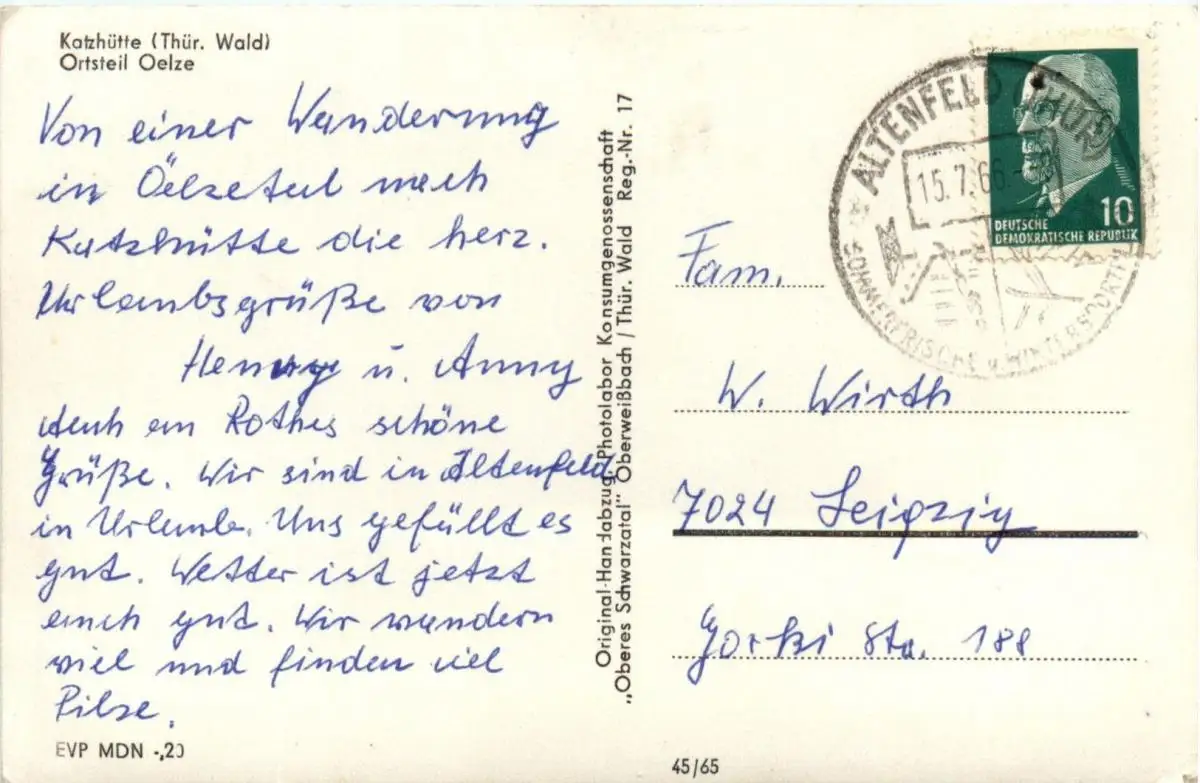 Katzhütte (Thür. Wald)
Ortsteil Oelze
Von einer Wanderung
in Ölzetal nach
Katzhütte die herz.
Urlaubsgrüße von
Henry u. Anny
Auch an Rothes schöne
Grüße. Wir sind in Altenfeld
in Urlaub. Uns gefällt es
gut. Wetter ist jetzt
auch gut. Wir wandern
viel und finden viel
Pilze.
EVP MDN -,20
Original-Handabzug: Photolabor Konsumgenossenschaft
„Oberes Schwarzatal" Oberweißbach / Thür. Wald Reg.-Nr. 17
ALTENFELD (THÜR)
15.7.66.-
SOMMERFRISCHE u. WINTERSPORT
10
DEUTSCHE
DEMOKRATISCHE REPUBLIK
Fam.
W. Wirth
7024 Leipzig
Gorki Str. 188
45/65